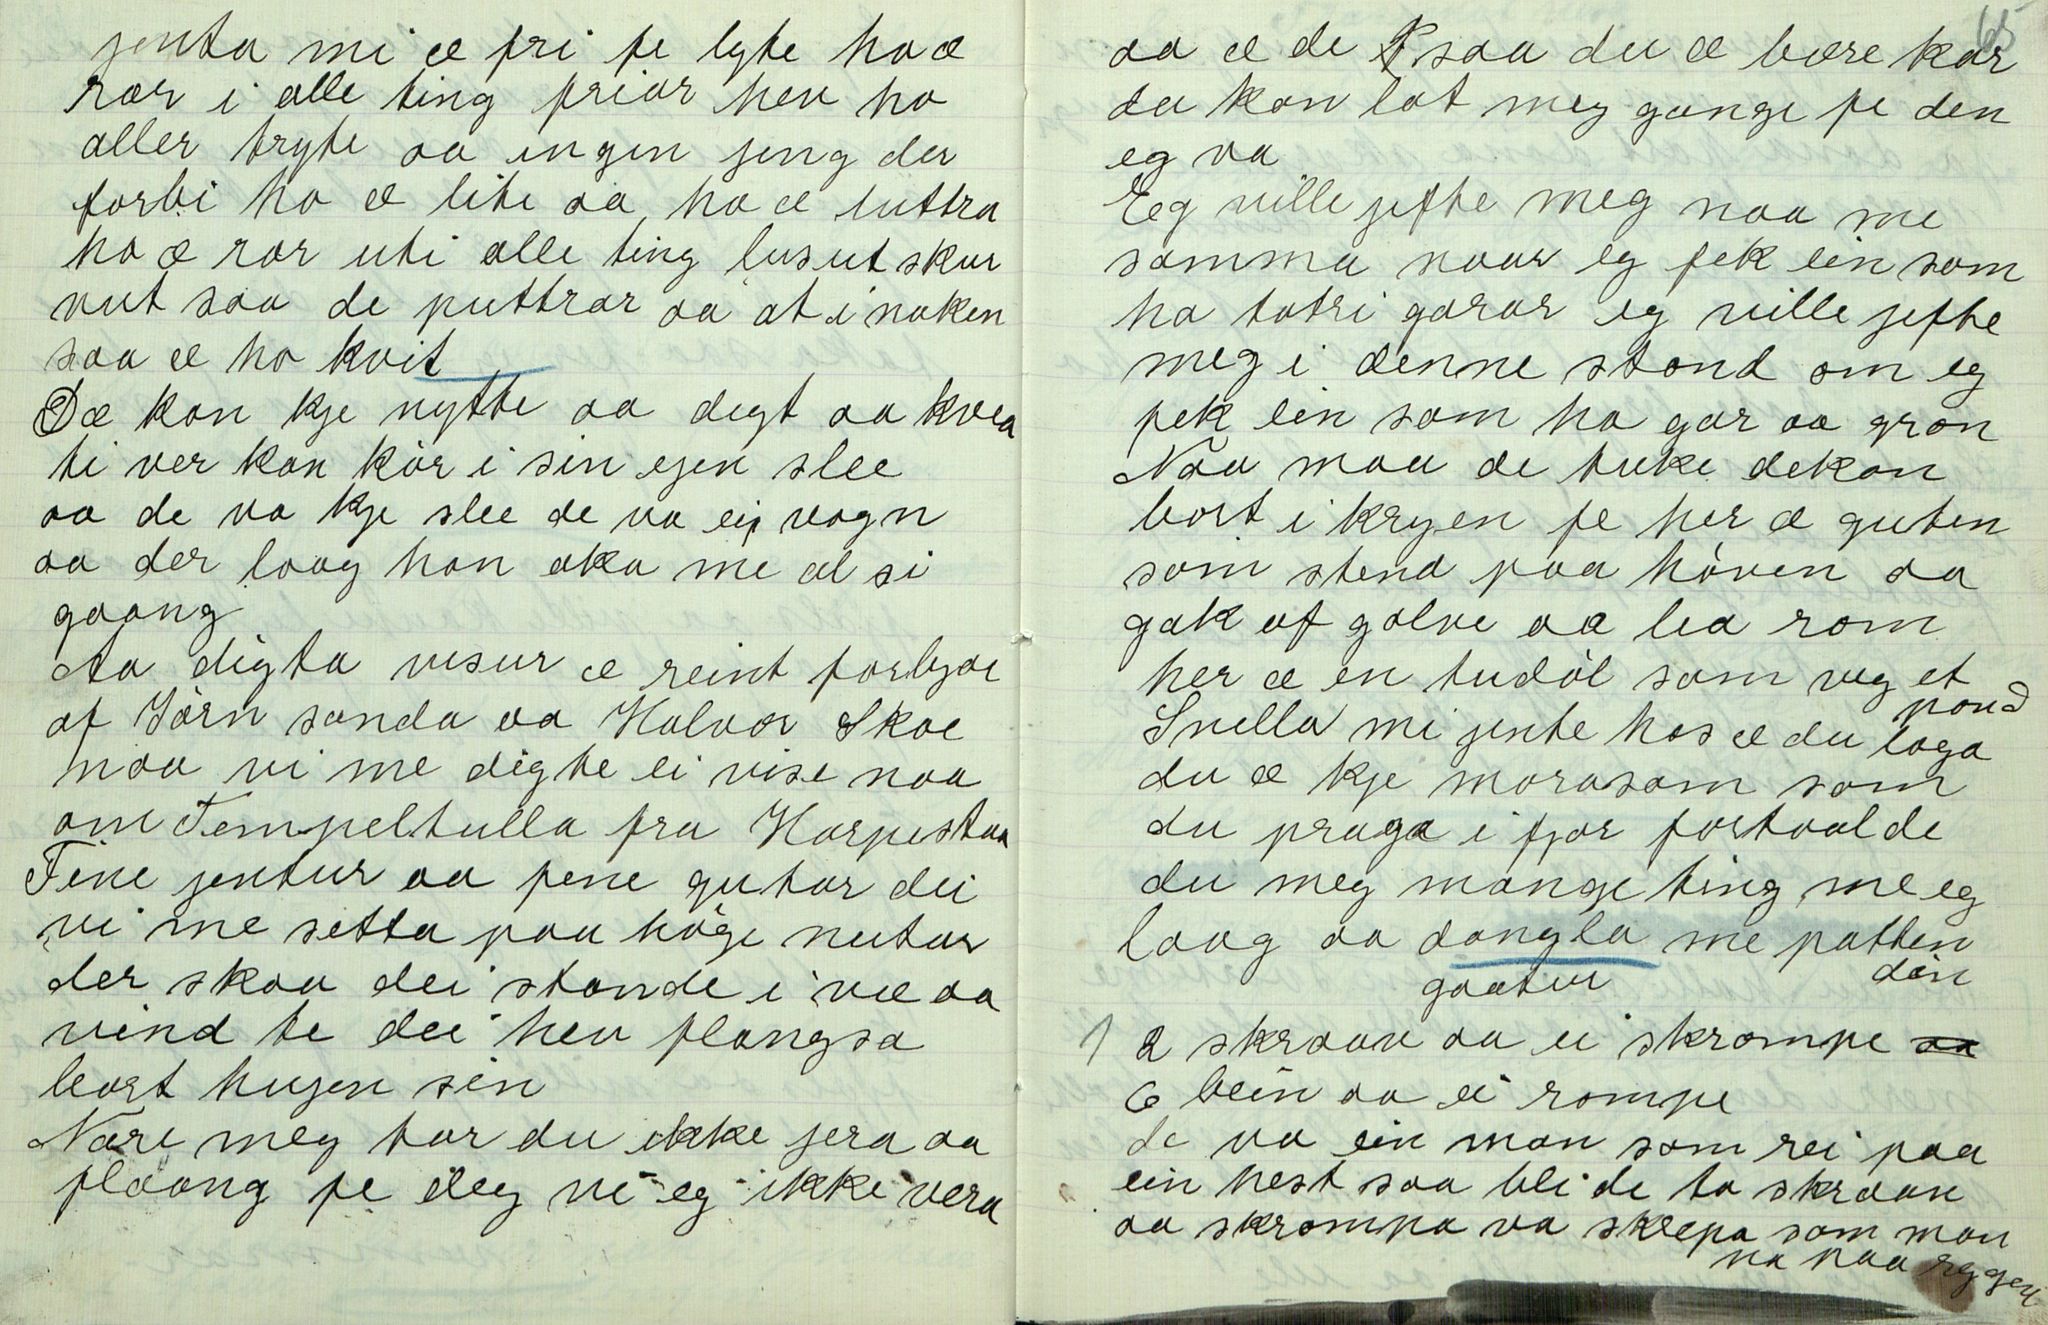 jenta mi æ fri fe lyte ho æ
rar i alle ting friar hev ho
aller tryte aa ingen jeng der
forbi ho æ lite aa ho æ luttra
ho æ rar uti alle ting lusut skur
vut saa de puttrar aa at i naken
saa æ ho kvit
Dæ kan kje nytte aa digt aa kvea
ti ver kan kòr i sin ejen slee
aa de va kje slee de va ein vogn
aa der laag han aka me al si
gaang
Aa digta visur æ reint forbjoe
af Jòrn sanda aa Halvor Skoe
maa vi me digte ei vise naa
om Tempeltulla fra Harpestaa
Fine jentur aa pene gutar dei
vi me setta paa høge nutar
der skaa dei stande i væ aa
vind te dei hev flangsa
bort hugen sin
Nære meg tar du ikke jera aa
plaang fe deg vi eg ikke vera
65
aa æ de saa du æ bære kar
du kan lat meg gange fe den
eg va
Eg ville jefte meg naa me
samma naar eg fek ein som
ha tatri garar eg ville jefte
meg i denne stand om eg
fek ein som ha gar aa gran
Naa maa de tuke dekan
bort i kryen fe her æ guten
som stend paa hòven aa
gak af golve aa lea rom
her æ en tudòl som veg et
pond
Snella mi jente hos æ du laga
du æ kje morasam som
du praga i fjor fortaalde
du meg mange ting me eg
laag aa dangla me patten
din
gaatur
1 2 skraau aa ei skrompe
6 bein aa ei rompe
de va ein man som rei paa
ein hest saa bli de to skraau
aa skrompa va skrepa som man
va paa ryggen